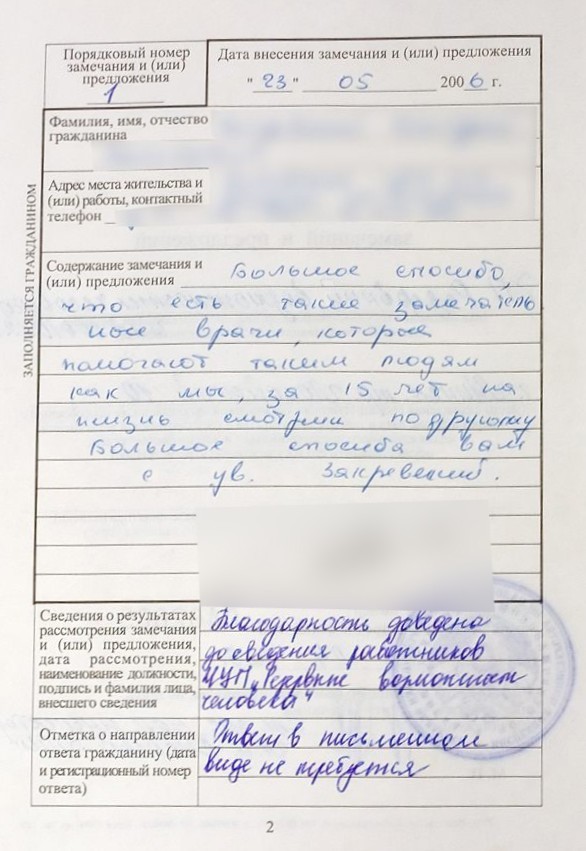 Порядковый номер
замечания и (или)
предложения
1
Дата внесения замечания и (или) предложения
"23" 05 2006 г.
ЗАПОЛНЯЕТСЯ ГРАЖДАНИНОМ
Фамилия, имя, отчество
гражданина
Адрес места жительства и
(или) работы, контактный
телефон
Содержание замечания и
(или) предложения Большое спосибо,
что есть такие замечатель
ные врачи, которые
помогают таким людям
как мы, за 15 лет на
жизнь смотрим по другому
Большое спосиба вам
с ув.
Сведения о результатах
рассмотрения замечания
и (или) предложения,
дата рассмотрения,
наименование должности,
подпись и фамилия лица,
внесшего сведения
Благодарность доведена
до сведения работников
"Резервные
человека"
Отметка о направлении
ответа гражданину (дата
и регистрационный номер
ответа)
Ответ в письменном
виде не требуется
2